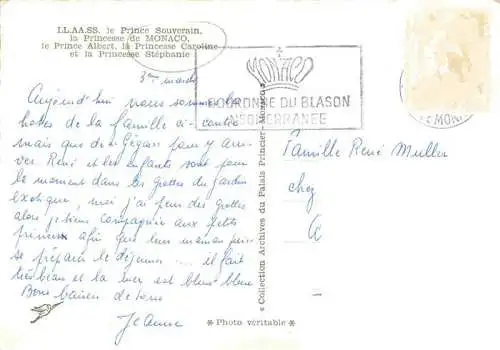 LL.AA.SS. le Prince Souverain,
la Princesse de MONACO,
le Prince Albert, la Princesse Caroline
et la Princesse Stéphanie
Aujourd'hui nous sommes les
hotes de la famille ci-contre
mais que de pour y arri-
ver. René et les enfants sont pour
le moment dans les grottes du jardin
exotique, moi j'ai peur des grottes
alors je tiens compagnie aux petits
princes afin que leur maman puis-
se préparer le déjeuner ... il fait
très beau et la mer est bleue bleue
Bons baisers de tous
Jeanne
MONACO
DU BLASON
MEDITERRANEE
MONA
« Collection Archives du Palais Princier Monaco »
Famille René Muller
chez
* Photo véritable *